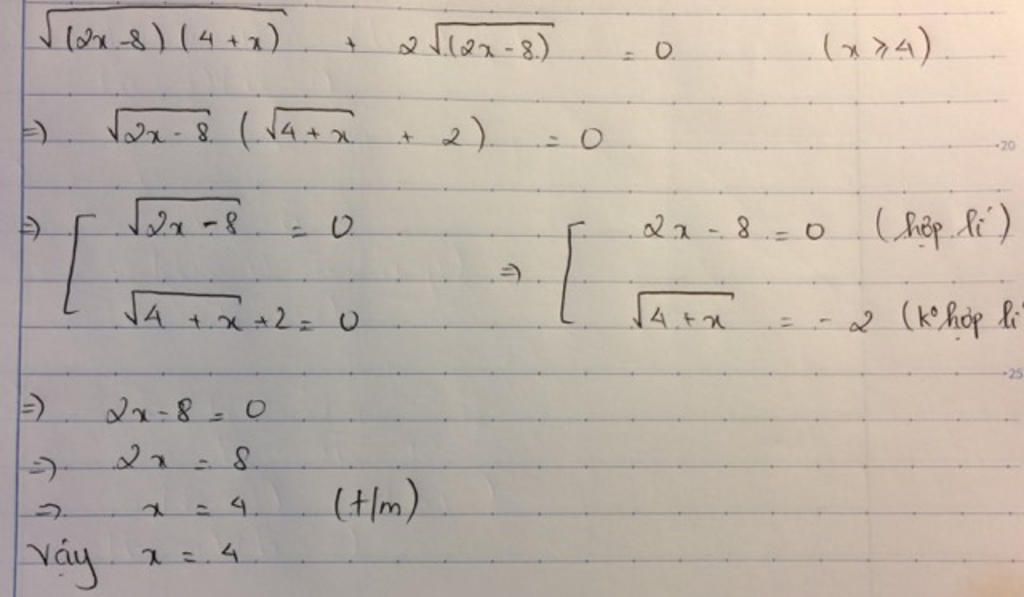 √((2x-8)(4+x)) + 2√((2x-8)) = 0 (x ⩾ 4)
⇒) √(2x-8) (√(4+x) + 2) = 0
20
⇒) [ √(2x-8) = 0 ⇒) [ 2x - 8 = 0 (hợp lí)
√(4+x) + 2 = 0 √(4+x) = - 2 (kº hợp lí
25
⇒) 2x - 8 = 0
⇒) 2x = 8
⇒ x = 4 (t/m)
Vậy x = 4